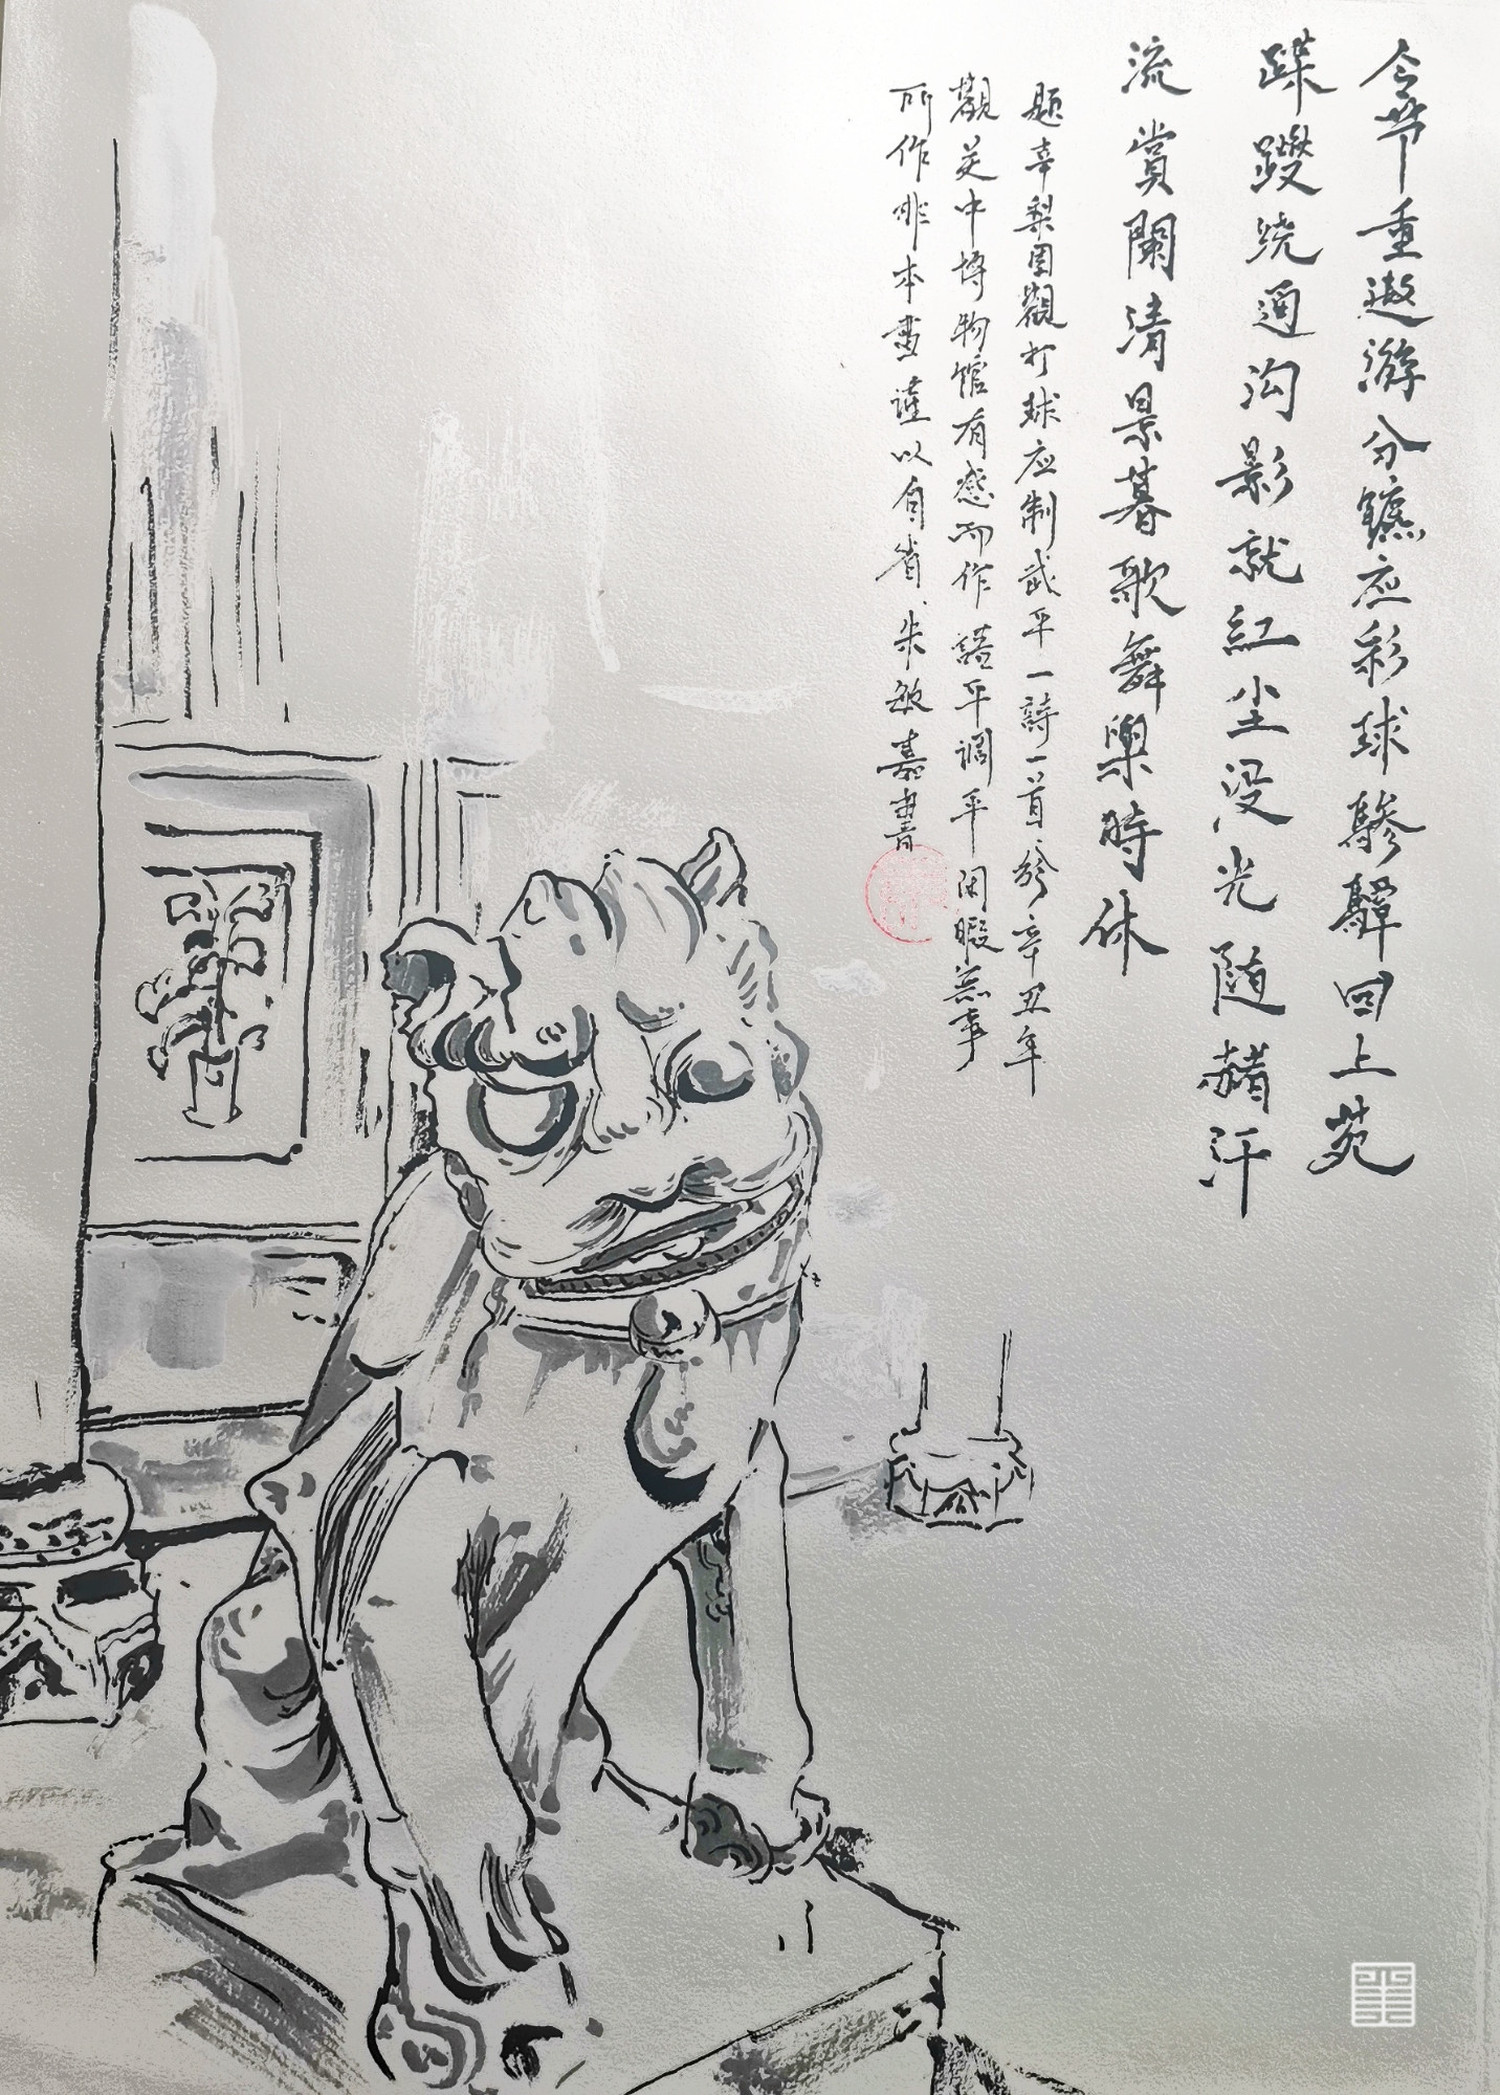 令节重遨游分鑣应彩球驂驔回上苑
蹀躞绕通沟影就紅尘没光随赭汗
流賞闌清景暮歌舞樂時休
题幸梨园觀打球应制武平一詩一首、於辛丑年
觀吴中博物馆有感而作平调平闲暇無事
所作本畫謹以自省、朱敏嘉書